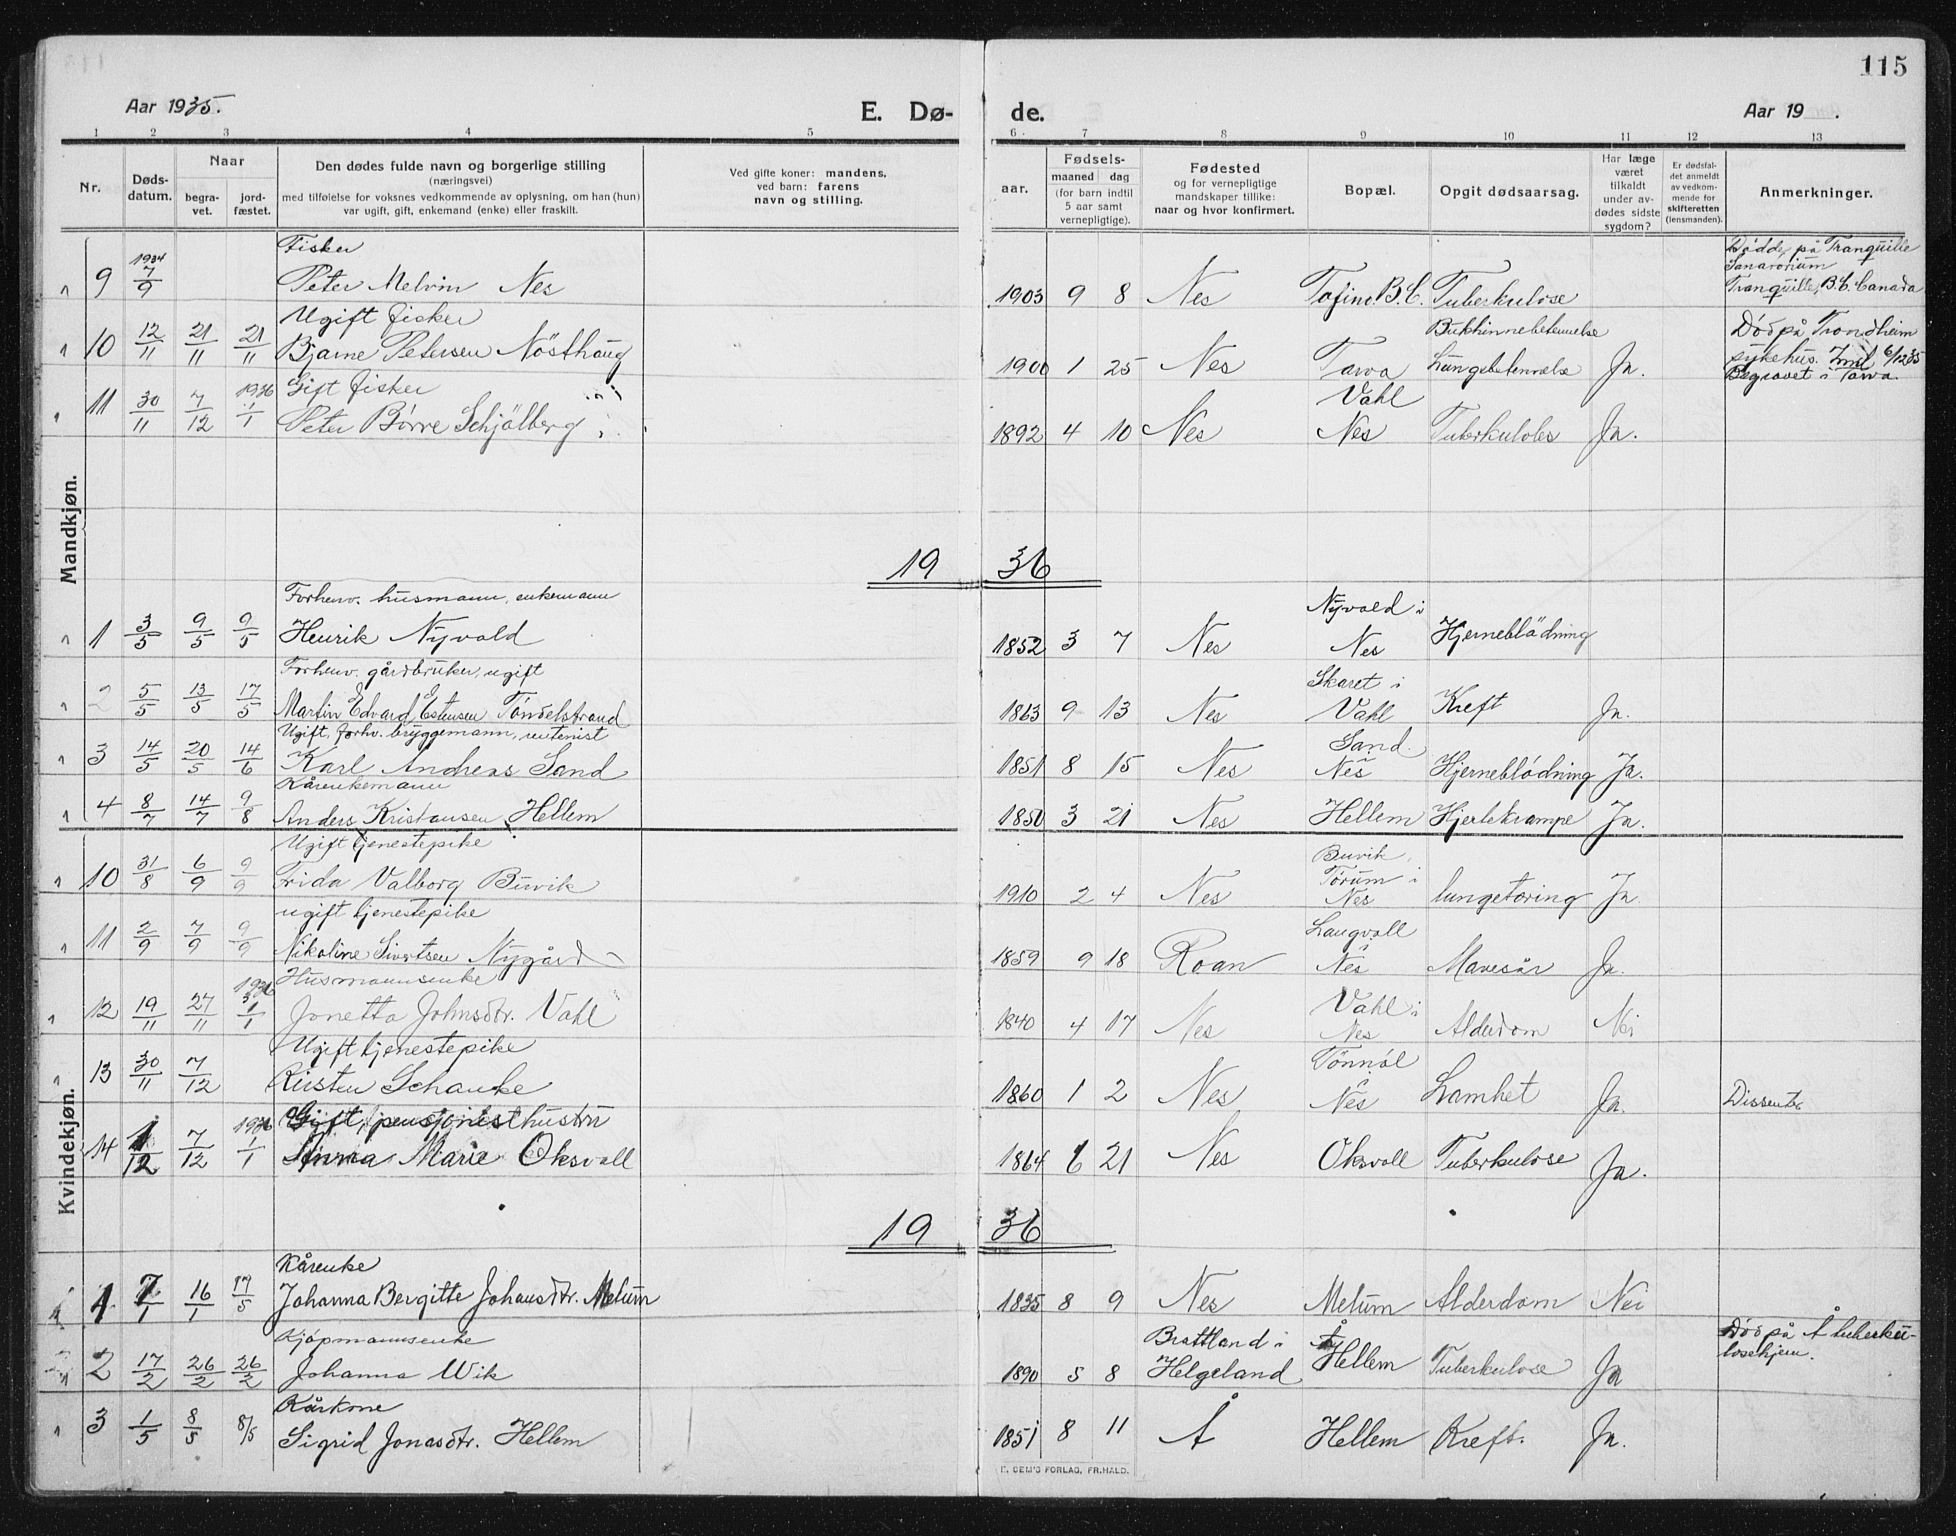 115
Aar 1935.
E. Dø-
de.
Aar 19 .
1 2 3 4 5 6 7 8 9 10 11 12 13
Nr.
Døds-
datum.
Naar
begra-
vet.
jord-
fæstet.
Den dødes fulde navn og borgerlige stilling
(næringsvei)
med tilføielse for voksnes vedkommende av oplysning, om han (hun)
var ugift, gift, enkemand (enke) eller fraskilt.
Ved gifte koner: mandens,
ved barn: farens
navn og stilling.
aar.
Fødsels-
maaned dag
(for barn indtil
5 aar samt
vernepligtige).
Fødested
og for vernepligtige
mandskaper tillike:
naar og hvor konfirmert.
Bopæl.
Opgit dødsaarsag.
Har læge
været
tilkaldt
under av-
dødes sidste
sygdom?
Er dødsfal-
det anmeldt
av vedkom-
mende for
skifteretten
(lensmanden).
Anmerkninger.
Mandkjøn.
Fisker
9 1934 7/9 Peter Melvin Nes 1903 9 8 Nes Tofino B.C. Tuberkulose
Dødde på Tranquille
Sanarorium
Tranquille, B.C. Canada
Ugift fisker
10 12/11 21/11 21/11 Bjarne Petersen Nösthaug 1900 1 25 Nes Tarva
Bukhinnebetennelse
Lungebetennelse Ja.
Död på Trondheim
sykehus. Inml 6/12 35
Begravet i Tarva.
Gift fisker
11 30/11 7/12 1936 1/1 Peter Børre Schjölberg 1892 4 10 Nes
Vahl
Nes Tuberkulose Ja.
19 36
Forhenv. husmann, enkemann
1 3/5 9/5 9/5 Henrik Nyvold 1852 3 7 Nes
Nyvold i
Nes Hjerneblödning
Forhenv. gårdbruker, ugift
2 5/5 13/5 17/5 Martin Edvard Estensen Töndelstrand 1863 9 13 Nes
Skaret i
Vahl Kreft Ja.
Ugift, forhv. bryggemann, rentenist
3 14/5 20/5 14/6 Karl Andreas Sand 1851 8 15 Nes
Sand
i
Nes Hjerneblödning Ja.
Kårenkemann
4 8/7 14/7 9/8 Anders Kristansen Hellem 1850 3 21 Nes Hellem Hjertekrampe Ja.
Kvindekjøn.
Ugift tjenestepike
10 31/8 6/9 9/9 Frida Valborg Buvik 1910 2 4 Nes
Buvik,
Tørum i
Nes lungetæring Ja.
ugift tjenestepike
11 2/9 7/9 9/9 Nikoline Sivertsen Nygård 1859 9 18 Roan
Langvoll
i
Nes Mavesår Ja.
Husmannsenke
12 19/11 27/11 1936 1/1 Jonetta Johnsdtr. Vahl 1840 4 17 Nes
Vahl i
Nes Alderdom Nei
Ugift tjenestepike
13 30/11 7/12 Kirsten Schanke 1860 1 2 Nes
Tönnöl
i
Nes Lamhet Ja. Dissenter
Gift, pensjonisthustru
14 1/12 7/12 1936 1/1 Anna Marie Oksvoll 1864 6 21 Nes Oksvoll Tuberkulose Ja.
19 36
Kårenke
1 7/1 16/1 17/5 Johanna Bergitte Johansdtr. Melum 1835 8 9 Nes Melum Alderdom Nei
Kjöpmannsenke
2 17/2 26/2 26/2 Johanna Wik 1890 5 8
Brattland i
Helgeland Hellem Tuberkulose Ja
Död på Å tuberku-
losehjem.
Kårkone
3 1/5 8/5 8/5 Sigrid Jonasdtr. Hellem 1851 8 11 Å Hellem Kreft. Ja.
E. SEM'S FORLAG, FR.HALD.